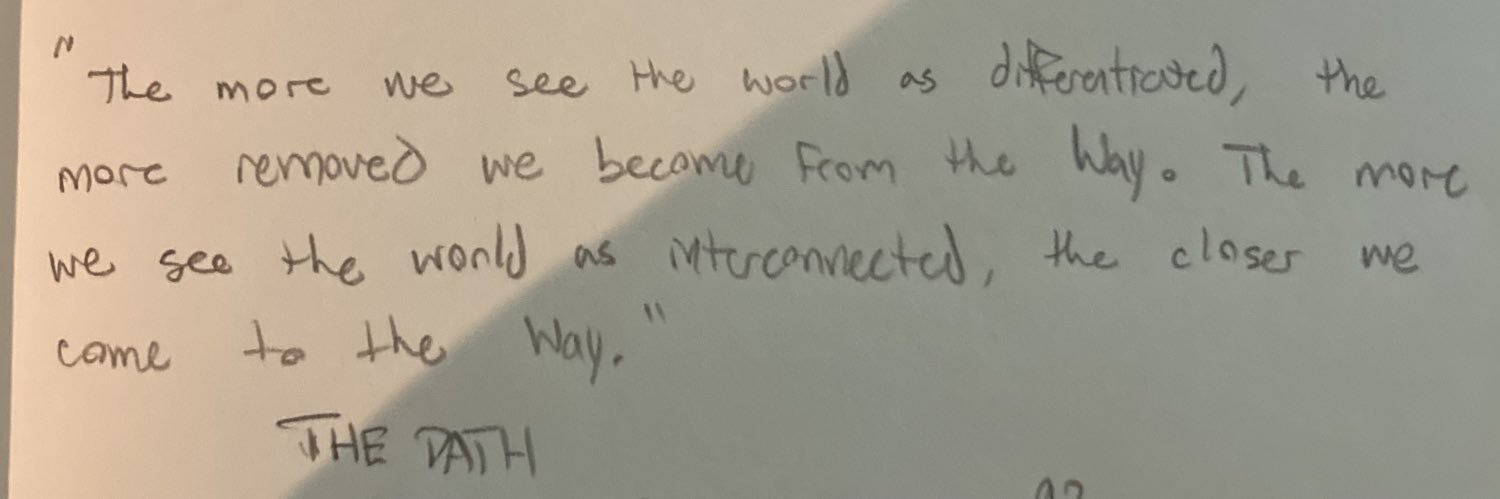 "The more we see the world as differentiated, the
more removed we become from the Way. The more
we see the world as interconnected, the closer we
come to the Way."
THE PATH